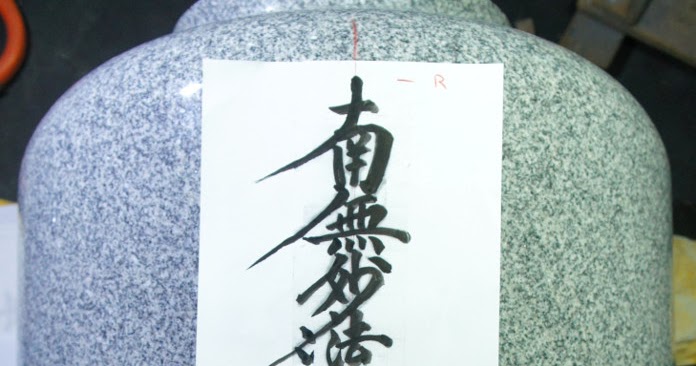 南無妙法
R